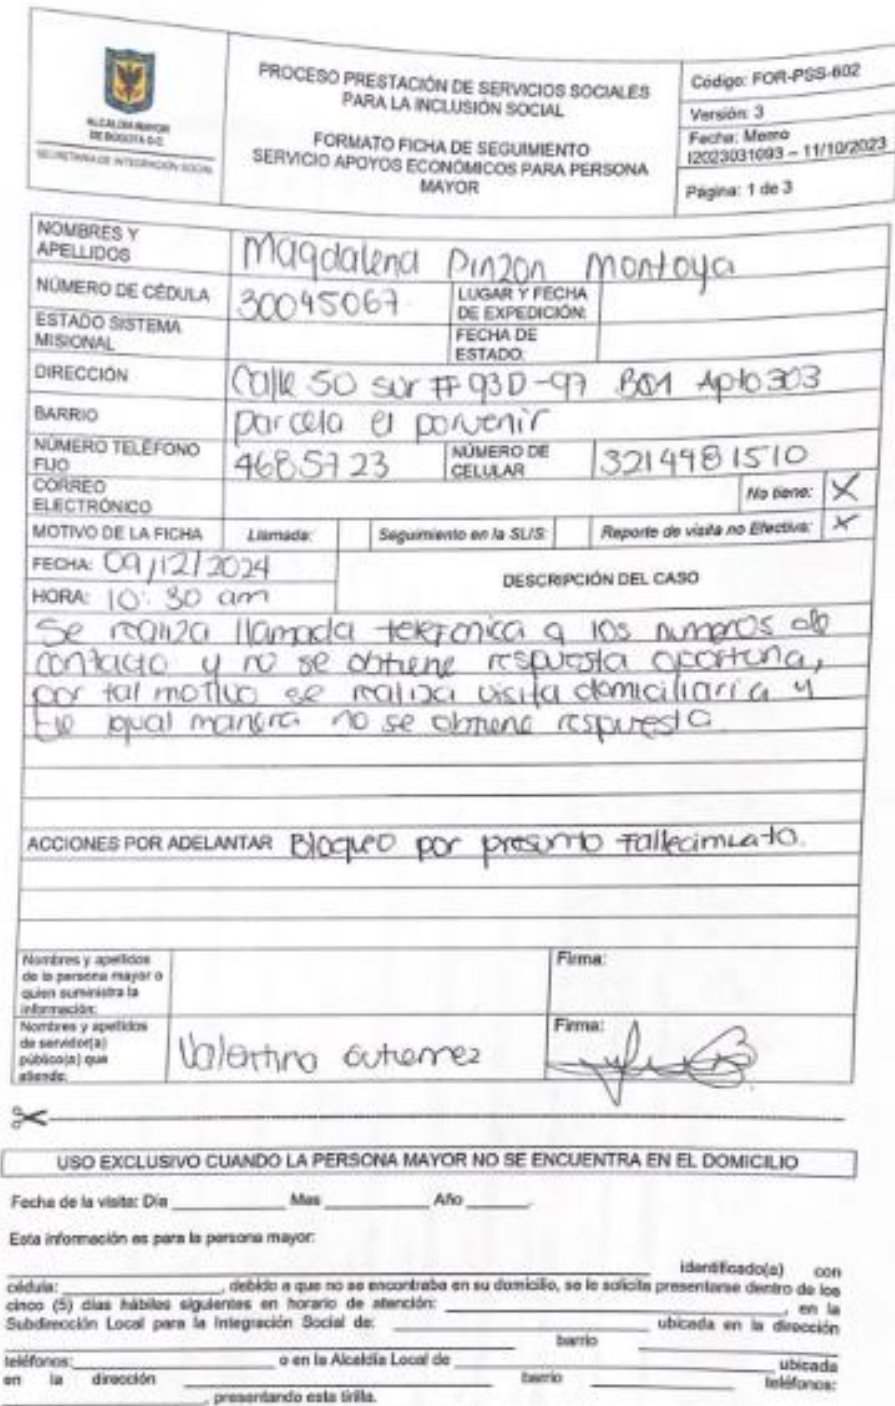 ALCALDÍA MAYOR
DE BOGOTÁ D.C.
SECRETARÍA DE INTEGRACIÓN SOCIAL
PROCESO PRESTACIÓN DE SERVICIOS SOCIALES
PARA LA INCLUSIÓN SOCIAL
FORMATO FICHA DE SEGUIMIENTO
SERVICIO APOYOS ECONÓMICOS PARA PERSONA
MAYOR
Código: FOR-PSS-602
Versión: 3
Fecha: Memo
I2023031093 – 11/10/2023
Página: 1 de 3
NOMBRES Y
APELLIDOS
Magdalena Pinzon Montoya
NÚMERO DE CÉDULA
30045067
LUGAR Y FECHA
DE EXPEDICIÓN:
ESTADO SISTEMA
MISIONAL
FECHA DE
ESTADO:
DIRECCIÓN
Calle 50 sur # 93D-97 Apto 303
BARRIO
parcela el porvenir
NÚMERO TELÉFONO
FIJO
4685723
NÚMERO DE
CELULAR
3214481510
CORREO
ELECTRÓNICO
No tiene: X
MOTIVO DE LA FICHA
Llamada:
Seguimiento en la SLIS:
Reporte de visita no Efectiva: X
FECHA: 09/12/2024
HORA: 10:30 am
DESCRIPCIÓN DEL CASO
Se realiza llamada telefonica a los numeros de
contacto y no se obtiene respuesta oportuna,
por tal motivo se realiza visita domiciliaria y
de igual manera no se obtiene respuesta.
ACCIONES POR ADELANTAR Bloqueo por presunto Fallecimiento.
Nombres y apellidos
de la persona mayor o
quien suministra la
información:
Firma:
Nombres y apellidos
de servidor(a)
público(a) que
atiende:
Valentina Gutierrez
Firma:
USO EXCLUSIVO CUANDO LA PERSONA MAYOR NO SE ENCUENTRA EN EL DOMICILIO
Fecha de la visita: Día ________ Mes ________ Año ______.
Esta información es para la persona mayor:
________ identificado(a) con
cédula: ________, debido a que no se encontraba en su domicilio, se le solicita presentarse dentro de los
cinco (5) días hábiles siguientes en horario de atención: ________, en la
Subdirección Local para la Integración Social de: ________ ubicada en la dirección
________ barrio ________
teléfonos: ________ o en la Alcaldía Local de ________ ubicada
en la dirección ________ barrio ________ teléfonos:
________, presentando esta tirilla.